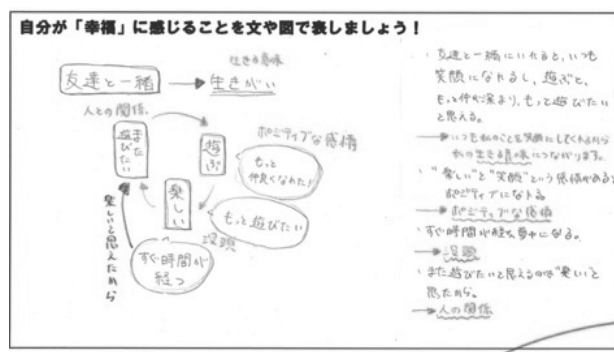 自分が「幸福」に感じることを文や図で表しましょう！
生きる意味
友達と一緒 → 生きがい
人との関係
また遊びたい
遊ぶ
ポジティブな感情
もっと仲良くなれた♪
楽しい
もっと遊びたい
没頭
すぐ時間が経つ
楽しいと思えたから
・友達と一緒にいれると、いつも
笑顔になれるし、遊ぶと、
もっと仲が深まり、もっと遊びたい
と思える。
→いつも私のことを笑顔にしてくれるから
私の生きる意味につながります。
・"楽しい"と"笑顔"という感情がある
ポジティブになれる
→ポジティブな感情
・すぐ時間が経ち夢中になる。
→没頭
・また遊びたいと思えるのは"楽しい"と
思たから。
→人の関係